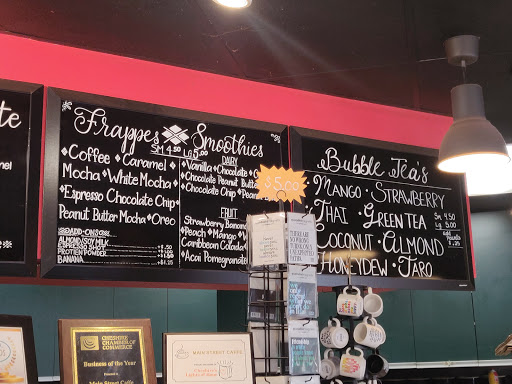 te
Frappes & Smoothies
SM 4.50 LG 5.00
•Coffee •Caramel
Mocha •White Mocha
•Espresso Chocolate Chip
Peanut Butter Mocha •Oreo
ADD-ONS
ALMOND/SOY MILK
ESPRESSO SHOT +.50
PROTEIN POWDER
BANANA +1.25
DAIRY
•Vanilla •Chocolate
Chocolate Peanut Butter
•Chocolate Chip •Peanut
FRUIT
Strawberry Banana
•Peach •Mango
Caribbean Colada
•Acai Pomegranate
$5.00
Bubble Tea's
Mango • Strawberry
Thai • Green Tea
Coconut • Almond
Honeydew • Taro
SM 4.50
LG. 5.00
CHESHIRE
CHAMBER OF
COMMERCE
Business of the Year
Main Street Caffe
MAIN STREET CAFFE